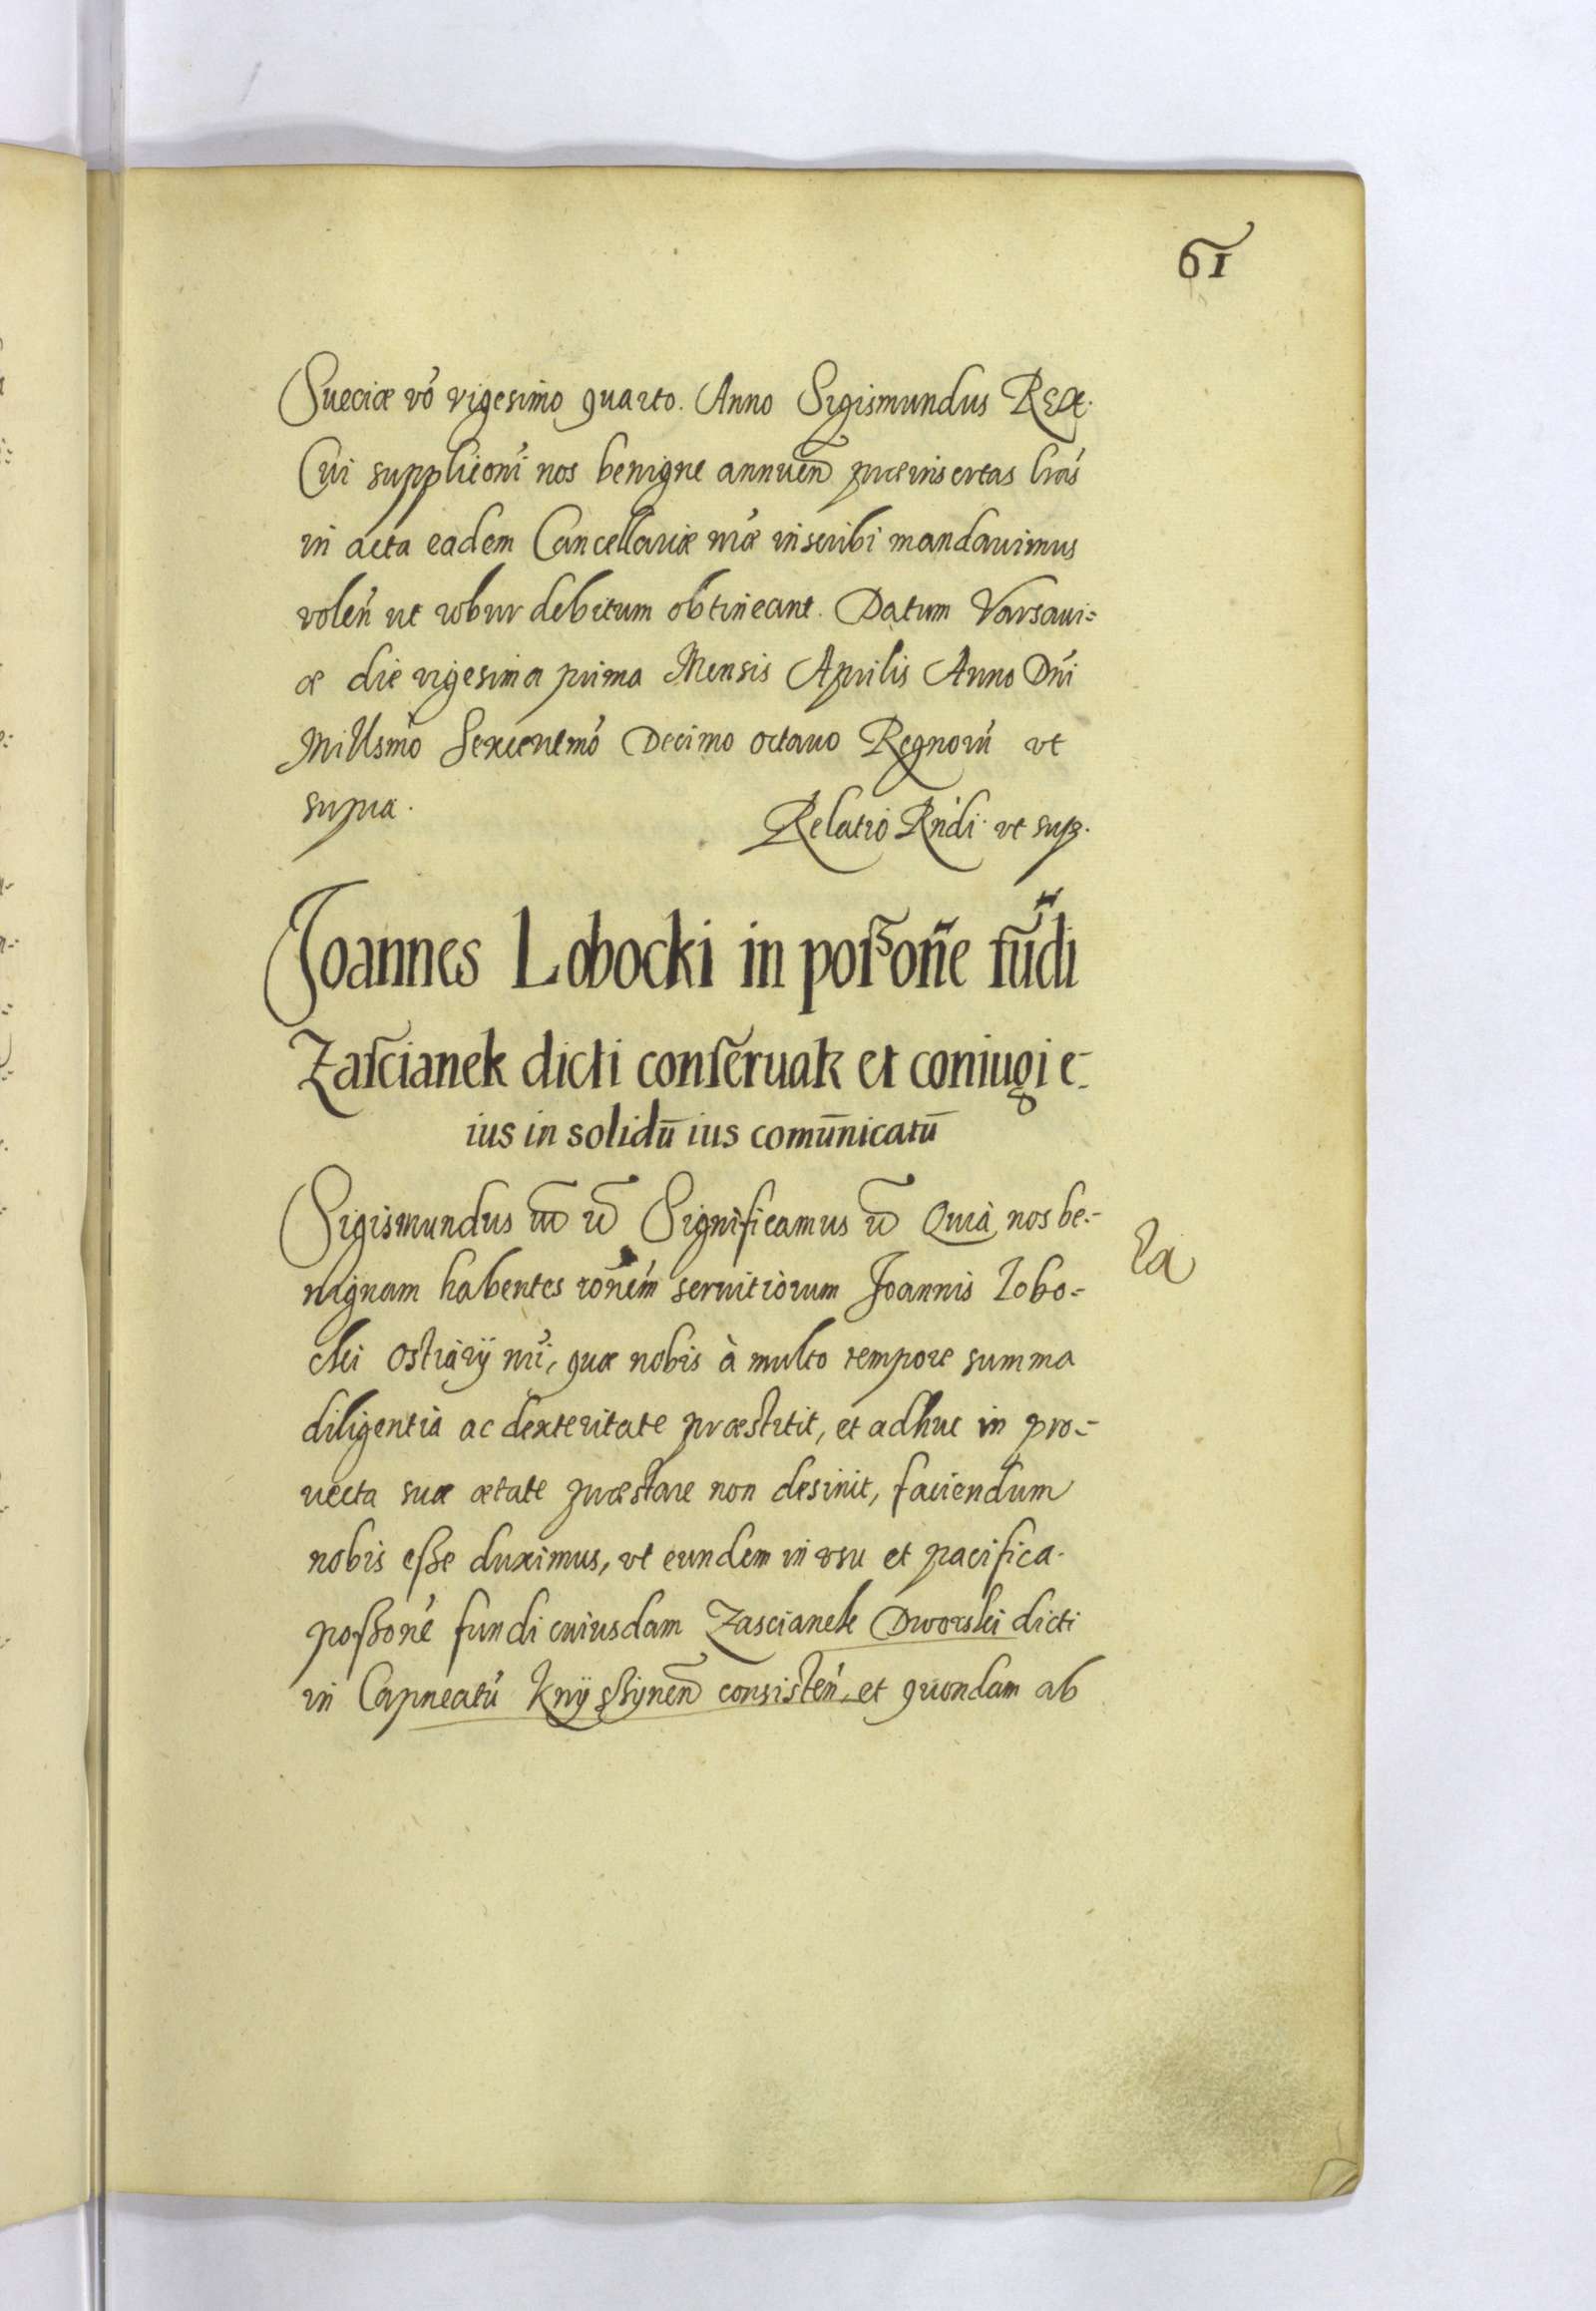 61
Sueciæ vő vigesimo quarto. Anno Sigismundus Rex.
Cui suppliconi nos benigne annueñ præinsertas lras
in acta eadem Cancellariæ nræ inscribi mandauimus
voleń ut robur debitum obtineant. Datum Varsaui=
æ die vigesima prima Mensis Aprilis Anno Dńi
Millsmo Sexcentmo Decimo octauo Regnorű vt
supra.
Relatio Rńdi vt sup.
Joannes Lobocki in poſsoñe fūdi
Zaſcianek dicti conſeruat et coniugi e-
ius in solidū ius comūnicatū
Sigismundus III etc Significamus etc Quià nos be=
nignam habentes rońem seruitiorum Joannis Lobo=
cki ostiarij nri, quæ nobis à multo tempore summa
diligentia ac dexteritate præstitit, et adhuc in pro=
uecta sua ætate præstare non desinit, faciendum
nobis eſse duximus, vt eundem in vsu et pacifica
poſsoné fundi cuiusdam Zascianek Dworski dicti
in Capneatu Knÿsſÿneñ consisteń, et quondam ab